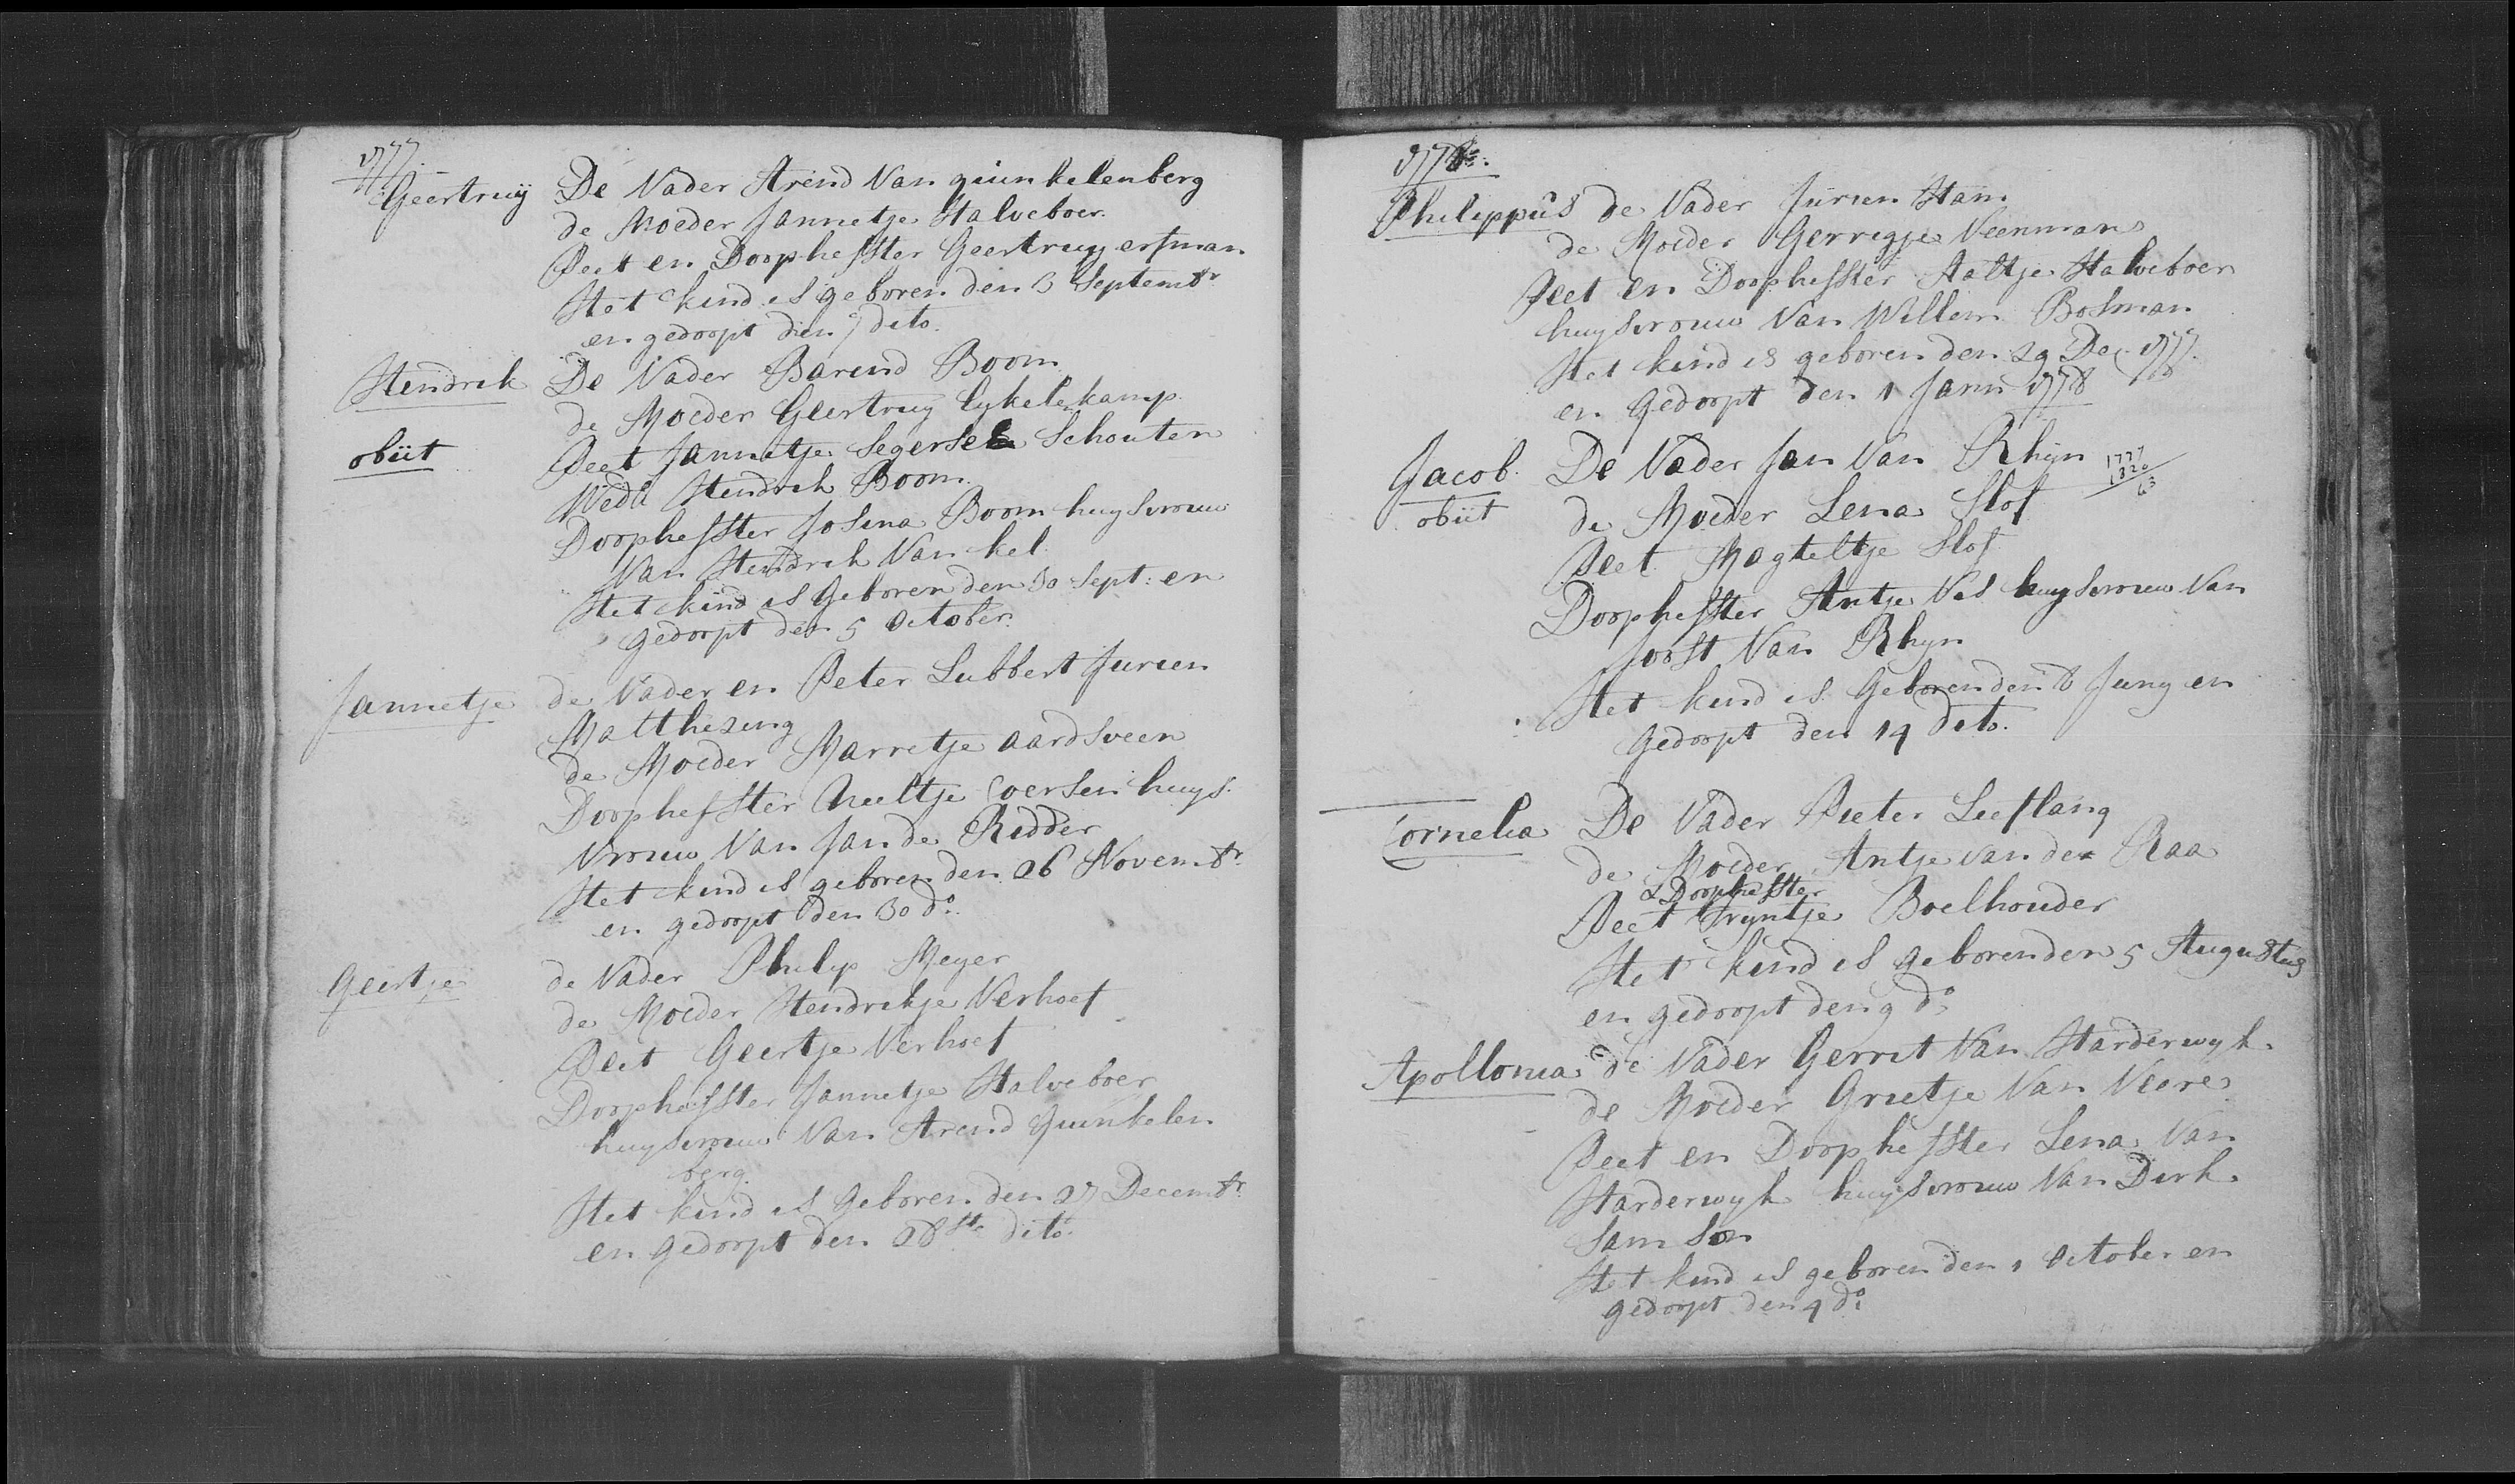 1777
Geertruij De Vader Arend Van quinkelenberg
de Moeder Jannetje Halveboer.
Peet en Doophefster Geertruij erfman
Het kind is geboren den 3 Septembr
en gedoopt den 7 dito.
Hendrik De Vader Barend Boom
de Moeder Geertruy Eykelekamp.
obiit Peet Jannetje Segersen Schouten
Wedu Hendrik Boom.
Doophefster Josina Boom huysvrouw
Van Hendrik Van kel.
Het kind is Geboren den 30 Sept: en
gedoopt den 5 October.
Jannetje de Vader en Peter Lubbert Jurien
Matthezing
de Moeder Marretje aardsveen
Doophefster Neeltje Coersen huys-
vrouw Van Jan de Ridder
Het kind is geboren den 26 Novembr
en gedoopt den 30 do.
Geertje de Vader Philip Meyer
de Moeder Hendrikje Verhoef
Peet Geertje Verhoef
Doophefster Jannetje Halveboer
huysvrouw Van Arend Quinkelen
berg.
Het kind is Geboren den 27 Decembr.
en gedoopt den 28ste dito.
1778.
Philippus de Vader Jurien Ham
de Moeder Gerregje Veenman
Peet en Doophefster Aaltje Halveboer
huysvrouw Van Willem Bosman
Het kind is geboren den 29 Dec. 1777.
en Gedoopt den 1 Jann 1778
Jacob. De Vader Jan Van Rhijn 1777
1820
43
obiit de Moeder Lena Slof
Peet Magteltje Slof
Doophefster Antje Vis huysvrouw Van
Joost Van Rhyn
Het kind is Geboren den 8 Juny en
Gedoopt den 14 dito.
Cornelia De Vader Pieter Leeflang
de Moeder Antje van der Raa
& Doophefster
Peet Tryntje Boelhouder
Het kind is geboren den 5 Augustus
en gedoopt den 9 do
Apollonia de Vader Gerrit Van Harderwyk.
de Moeder Grietje Van Veere
Peet en Doophefster Lena Van
Harderwyk huysvrouw Van Dirk
Samson
Het kind is geboren den 1 October en
gedoopt den 4 do